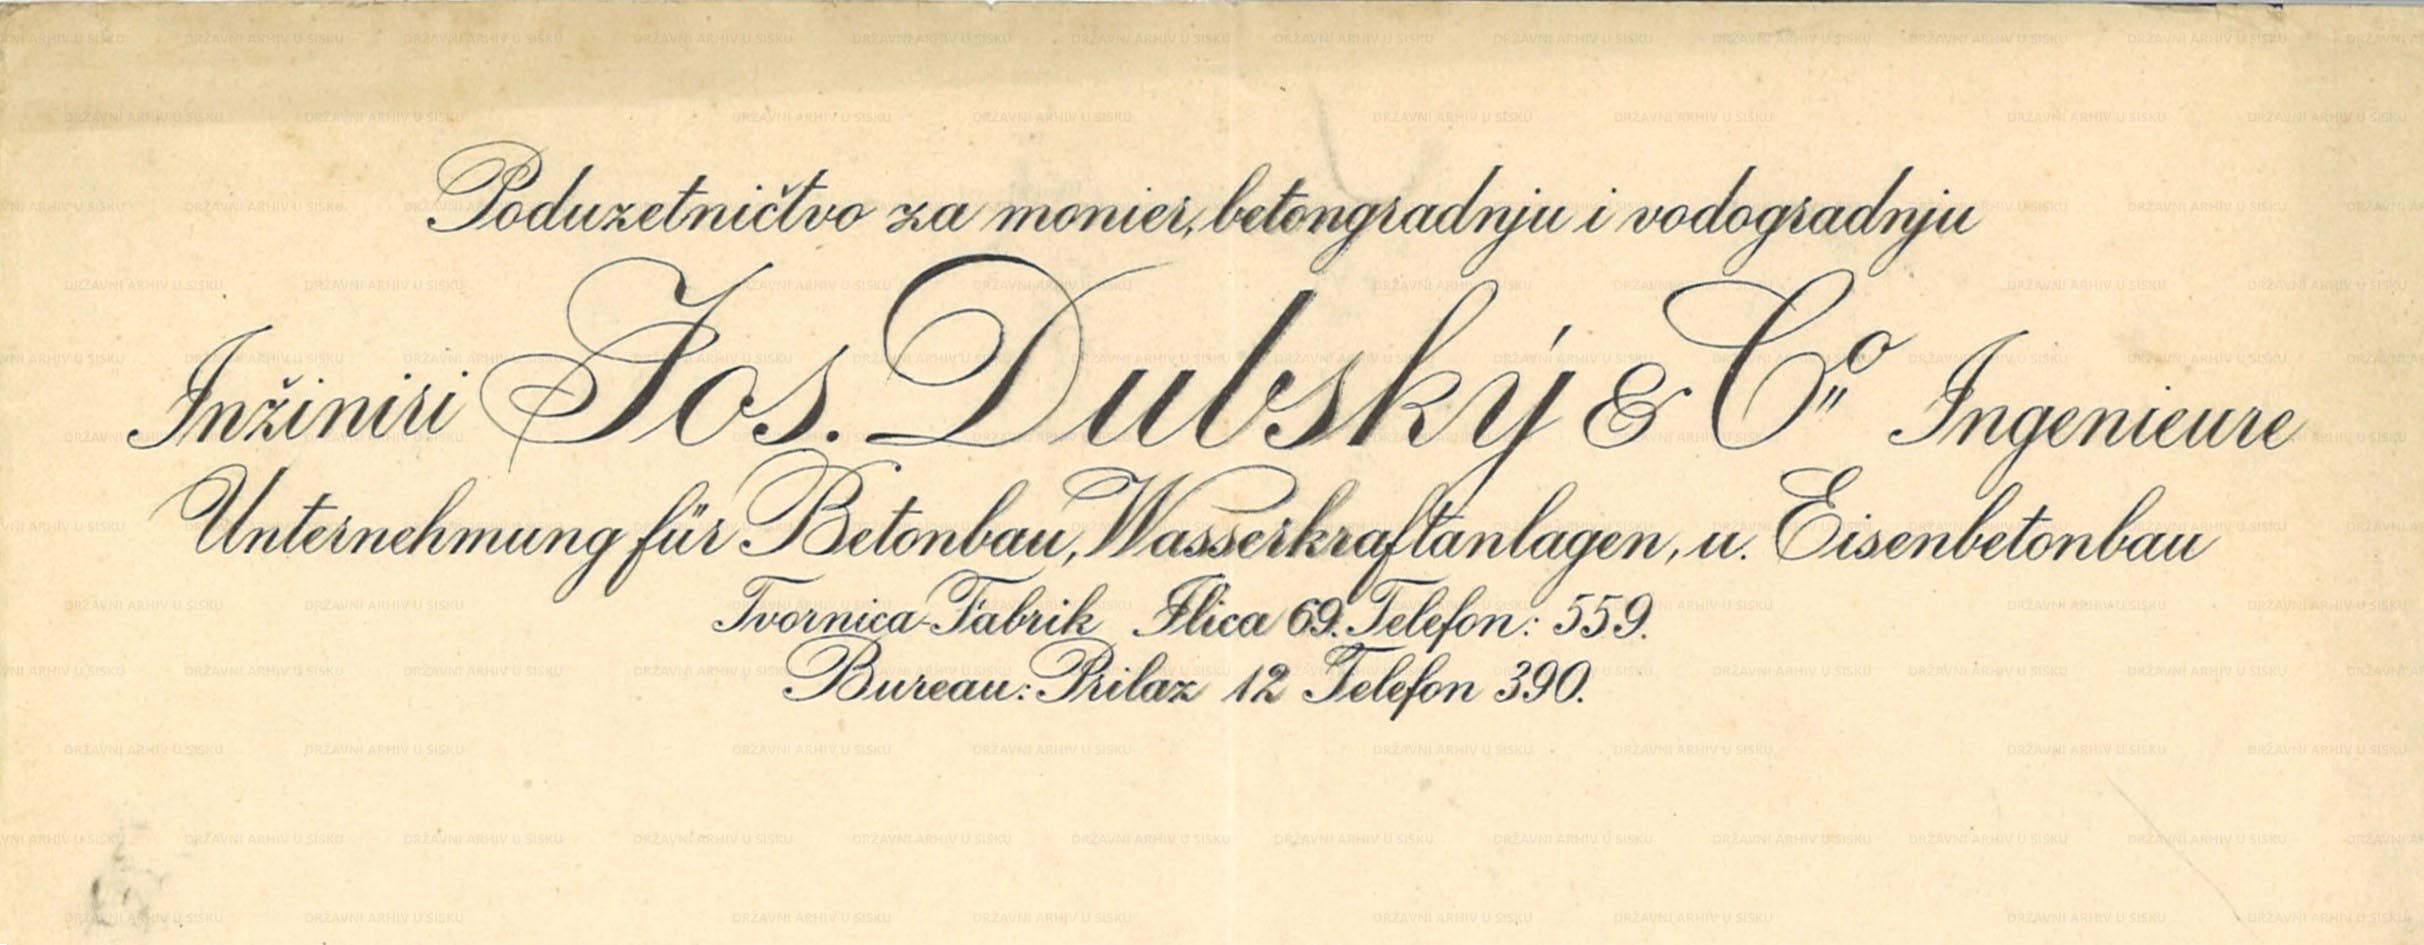 Poduzetničtvo za monier, betongradnju i vodogradnju
Inžiniri Jos. Dubský & Co. Ingenieure
Unternehmung für Betonbau, Wasserkraftanlagen, u. Eisenbetonbau
Tvornica-Fabrik Ilica 69. Telefon: 559.
Bureau: Prilaz 12 Telefon 390.
DRŽAVNI ARHIV U SISKU